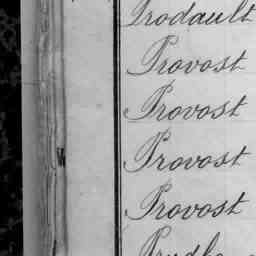 Prodault
Provost
Provost
Provost
Provost